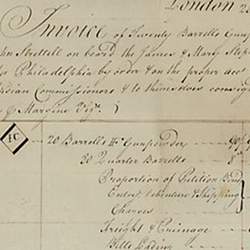 London 2
Invoice of Twenty Barrells Gunp
hn Strettell on board the James & Mary
for Philadelphia by order & on the proper acc
ndian Commissioners & to themselves consign
Margine Viz.
IC 20 Barrells Gunpowder
20 Quarter Barrells
Proportion of Petition Bond
Entry debenture & Shipping
Chances
Freight & Primage
Bills Lading